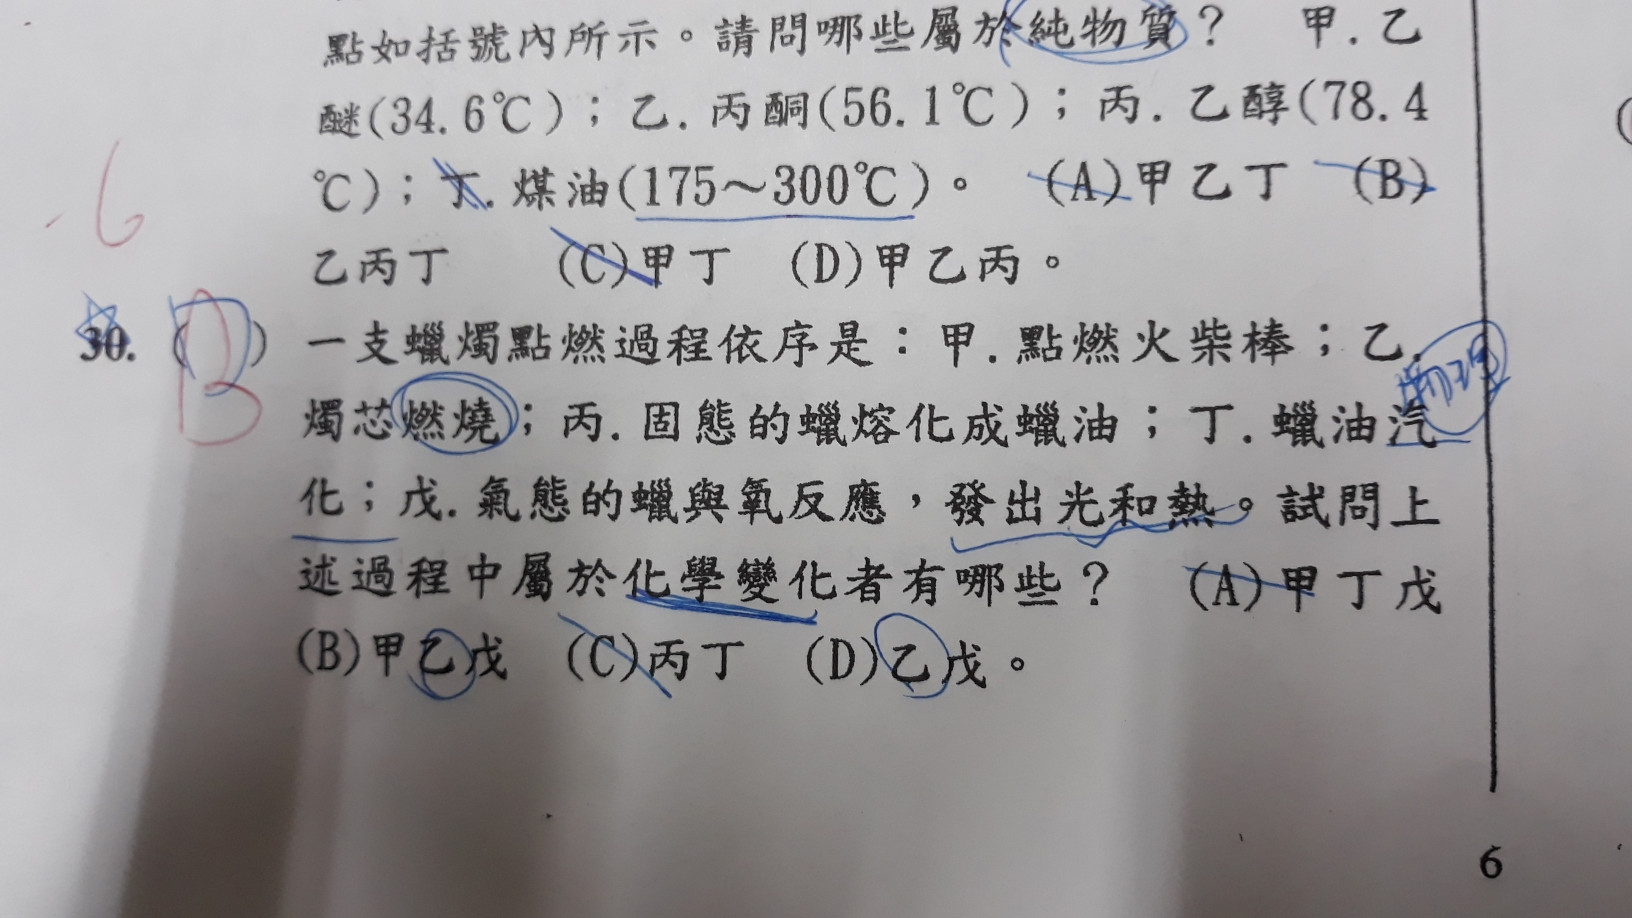 點如括號內所示。請問哪些屬於純物質？ 甲.乙
醚(34.6℃)；乙.丙酮(56.1℃)；丙.乙醇(78.4
℃)；丁.煤油(175～300℃)。 (A)甲乙丁 (B)
乙丙丁 (C)甲丁 (D)甲乙丙。
-6
30. (D) 一支蠟燭點燃過程依序是：甲.點燃火柴棒；乙.
B
物理
燭芯燃燒；丙.固態的蠟熔化成蠟油；丁.蠟油汽
化；戊.氣態的蠟與氧反應，發出光和熱。試問上
述過程中屬於化學變化者有哪些？ (A)甲丁戊
(B)甲乙戊 (C)丙丁 (D)乙戊。
6